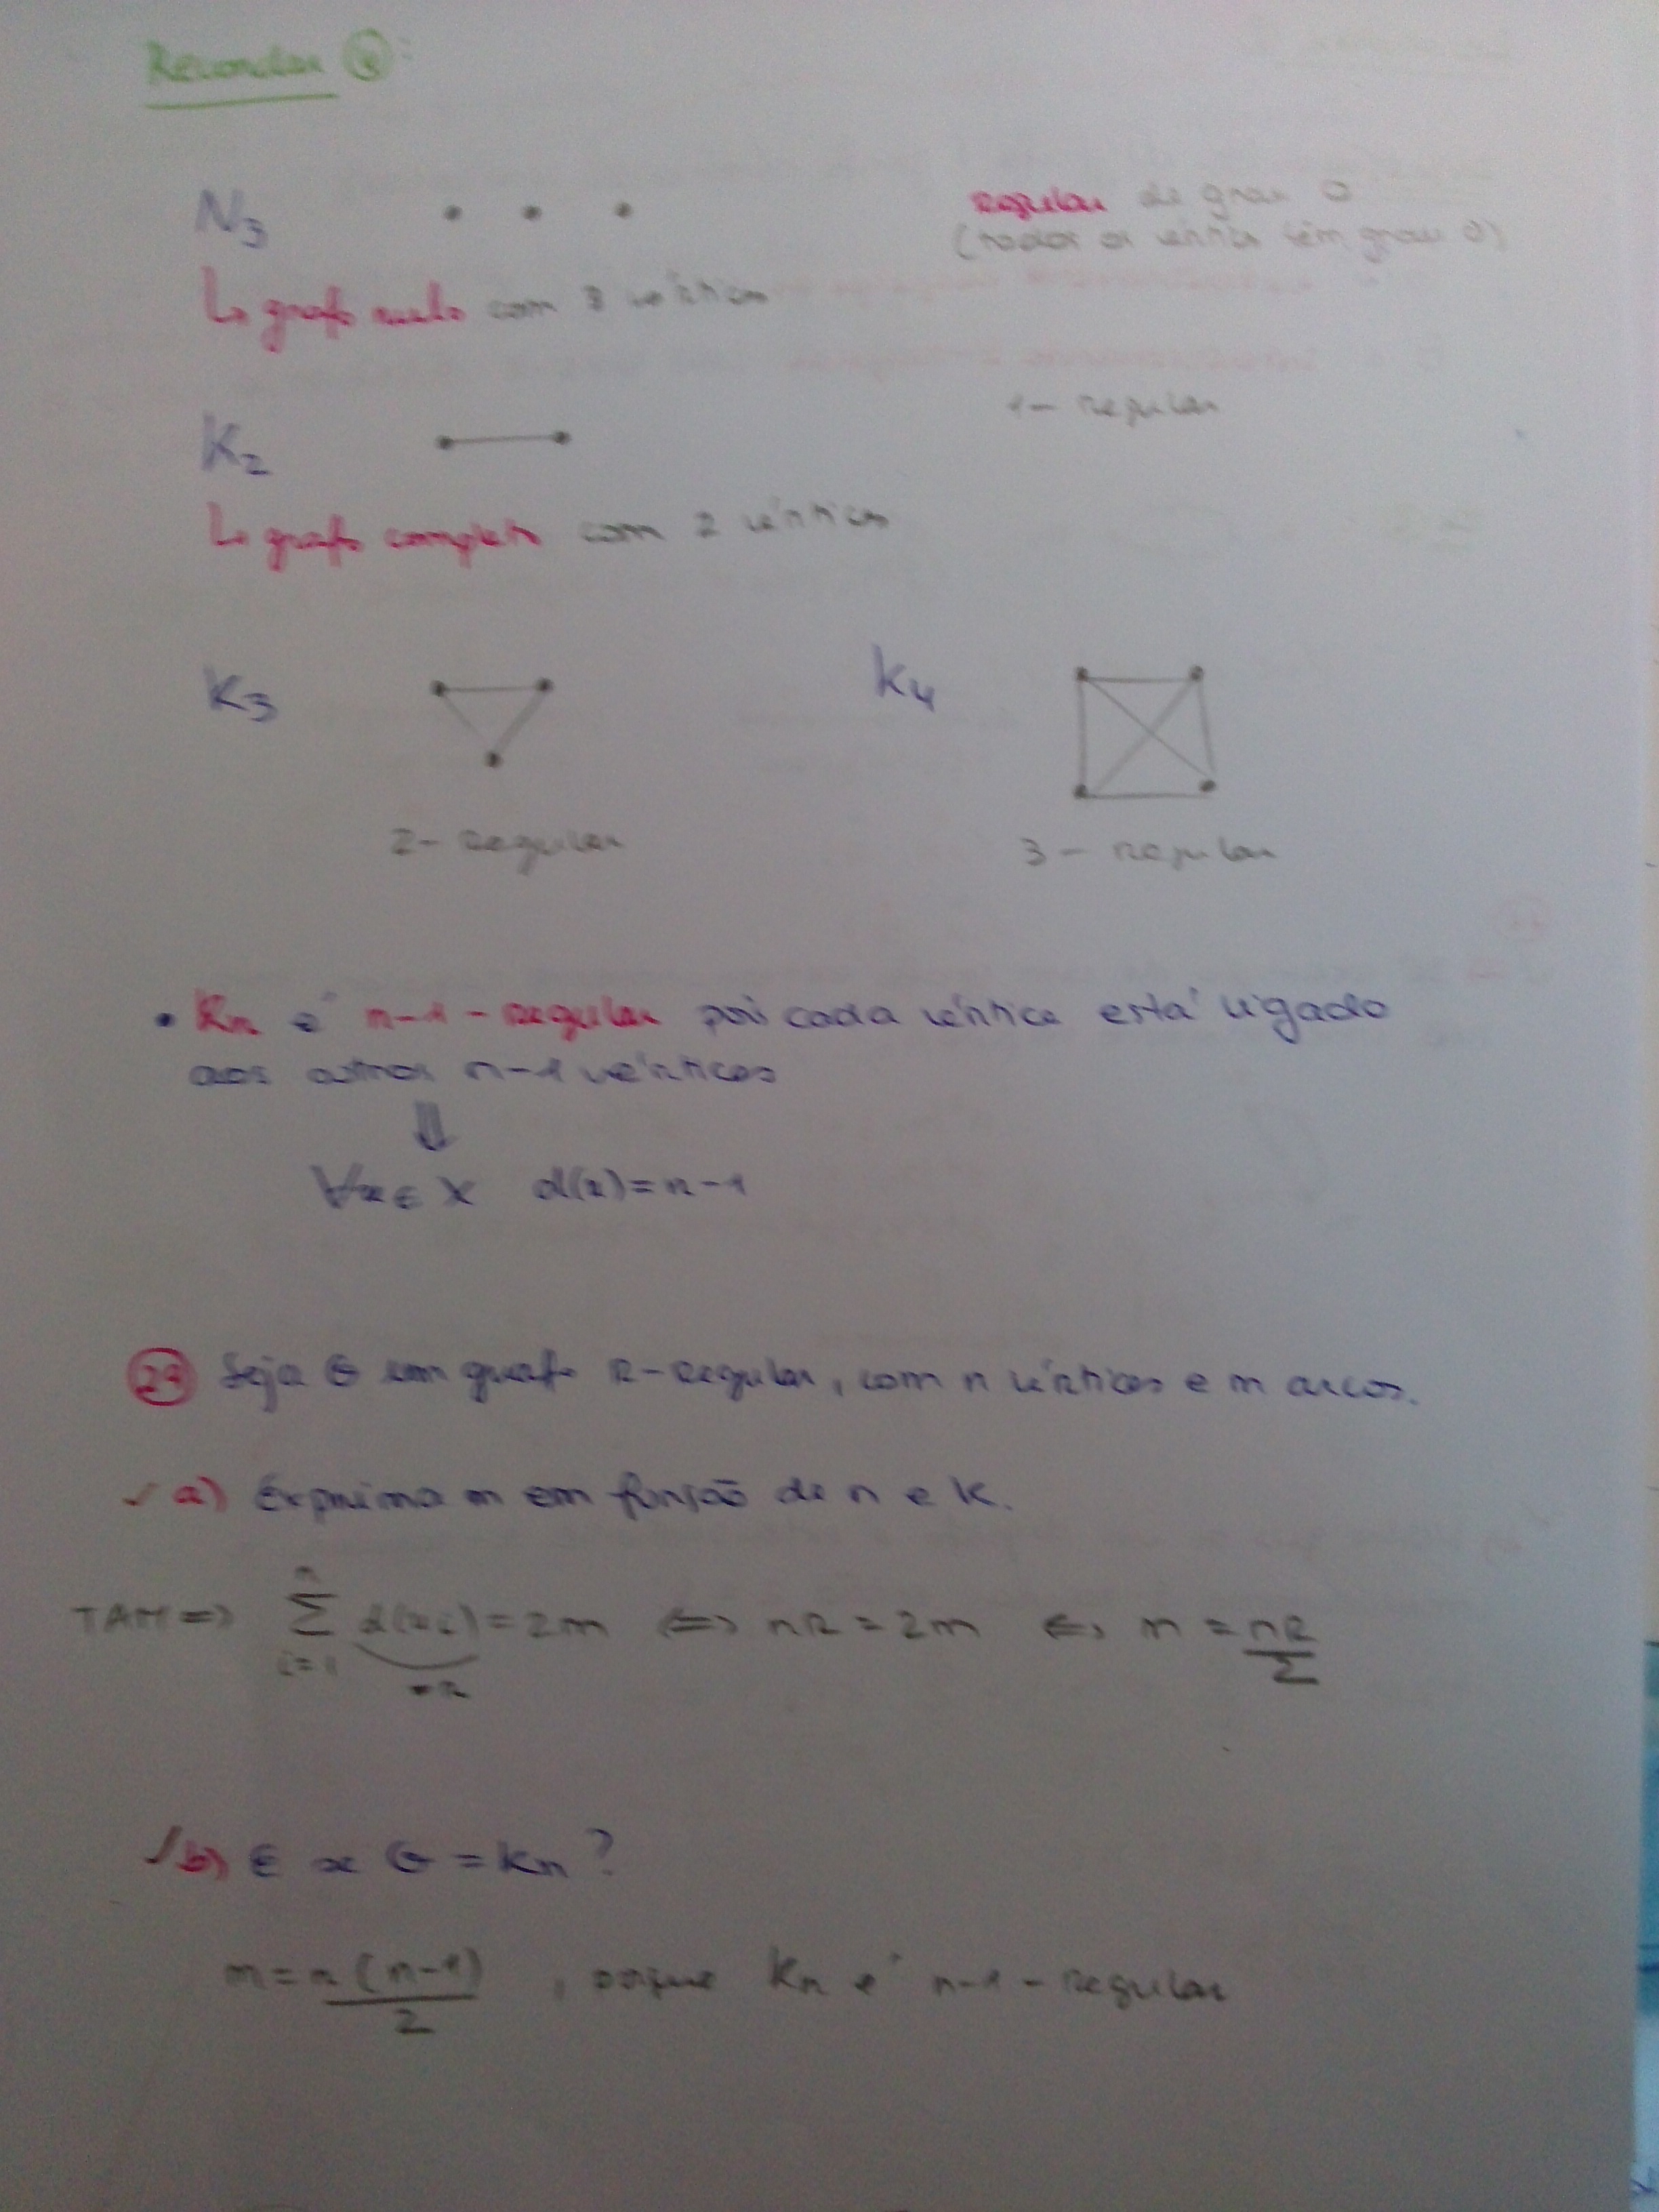 Recordar
N3
regular de grau 0
(todos os vértices têm grau 0)
↳ grafo nulo com 3 vértices
K2
1- regular
↳ grafo completo com 2 vértices
K3
K4
2- regular
3- regular
• Kn é n-1-regular pois cada vértice está ligado
aos outros n-1 vértices
⇓
∀x∈X d(x)=n-1
29 Seja G um grafo k-regular, com n vértices e m arcos.
✓ a) Exprima m em função de n e k.
TAM => ∑_{i=1}^{n} d(xi) = 2m <=> nk = 2m <=> m = nk/2
=k
✓ b) E se G = Kn ?
m = n(n-1)/2 , porque Kn é n-1-regular